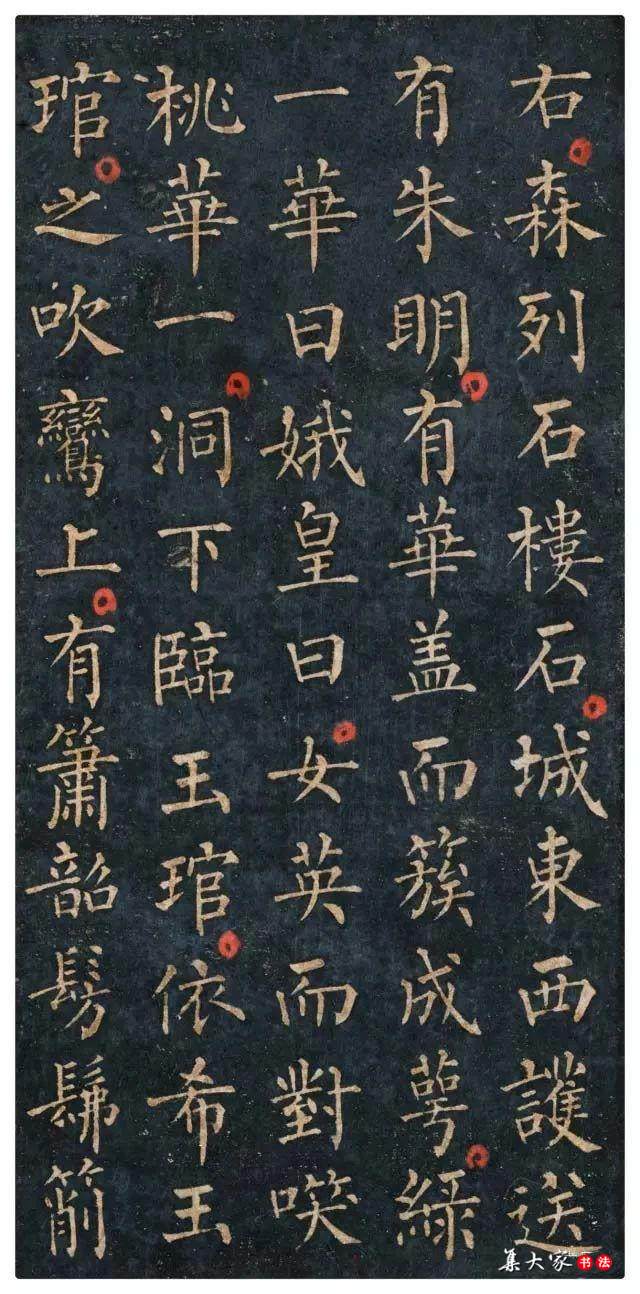 右森列石樓石城東西護送
有朱明有華盖而簇成萼綠
一華曰娥皇曰女英而對㗛
桃華一洞下臨玉琯依希玉
琯之吹鸞上有簫韶髣髴箾
集大家書法